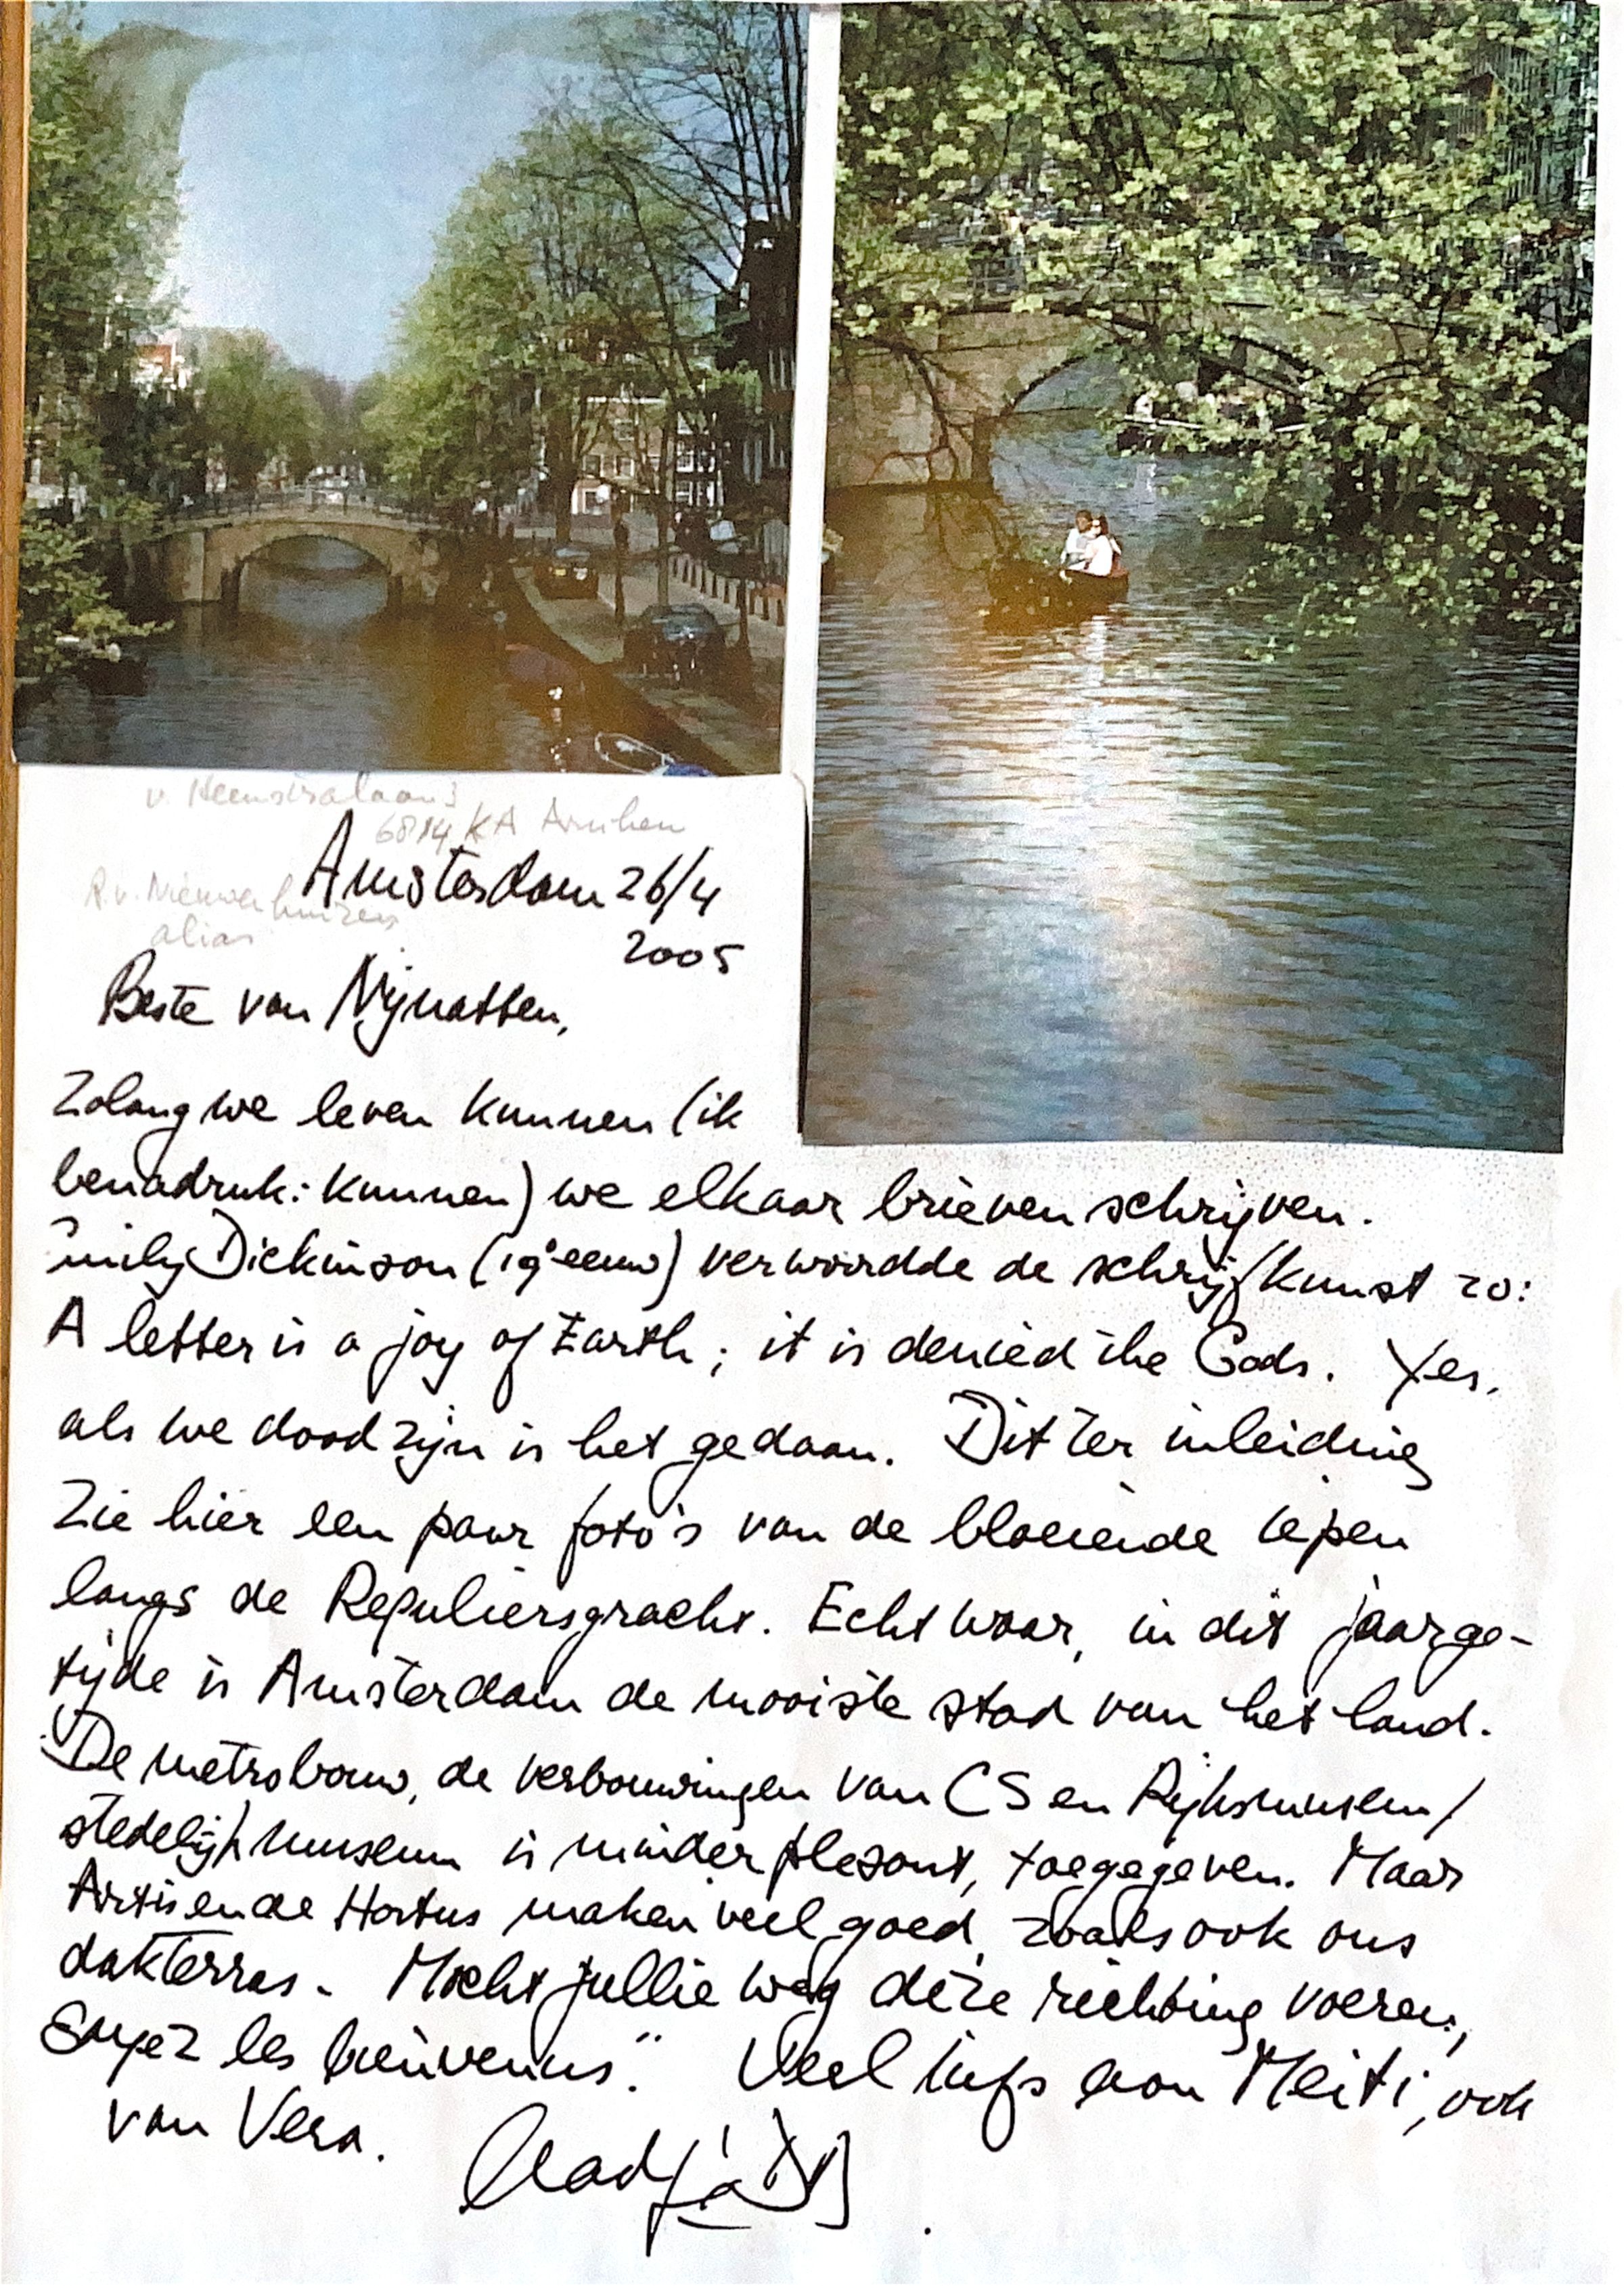 v. Heemstralaan
6814 KA Arnhem
Amsterdam 26/4
2005
alias
Beste van Nijnatten,
Zolang we leven kunnen (ik
benadruk: kunnen) we elkaar brieven schrijven.
Emily Dickinson (19e eeuw) verwoordde de schrijfkunst zo:
A letter is a joy of Earth; it is denied the Gods. Yes,
als we dood zijn is het gedaan. Dit ter inleiding
Zie hier een paar foto's van de bloeiende iepen
langs de Reguliersgracht. Echt waar, in dit jaarge-
tijde is Amsterdam de mooiste stad van het land.
De metrobouw, de verbouwingen van CS en Rijksmuseum/
stedelijk museum is minder plezant, toegegeven. Maar
Artis en de Hortus maken veel goed, zoals ook ons
dakterras. Mocht jullie weg deze richting voeren,
Soyez les bienvenus". Veel liefs aan Meiti, ook
van Vera.